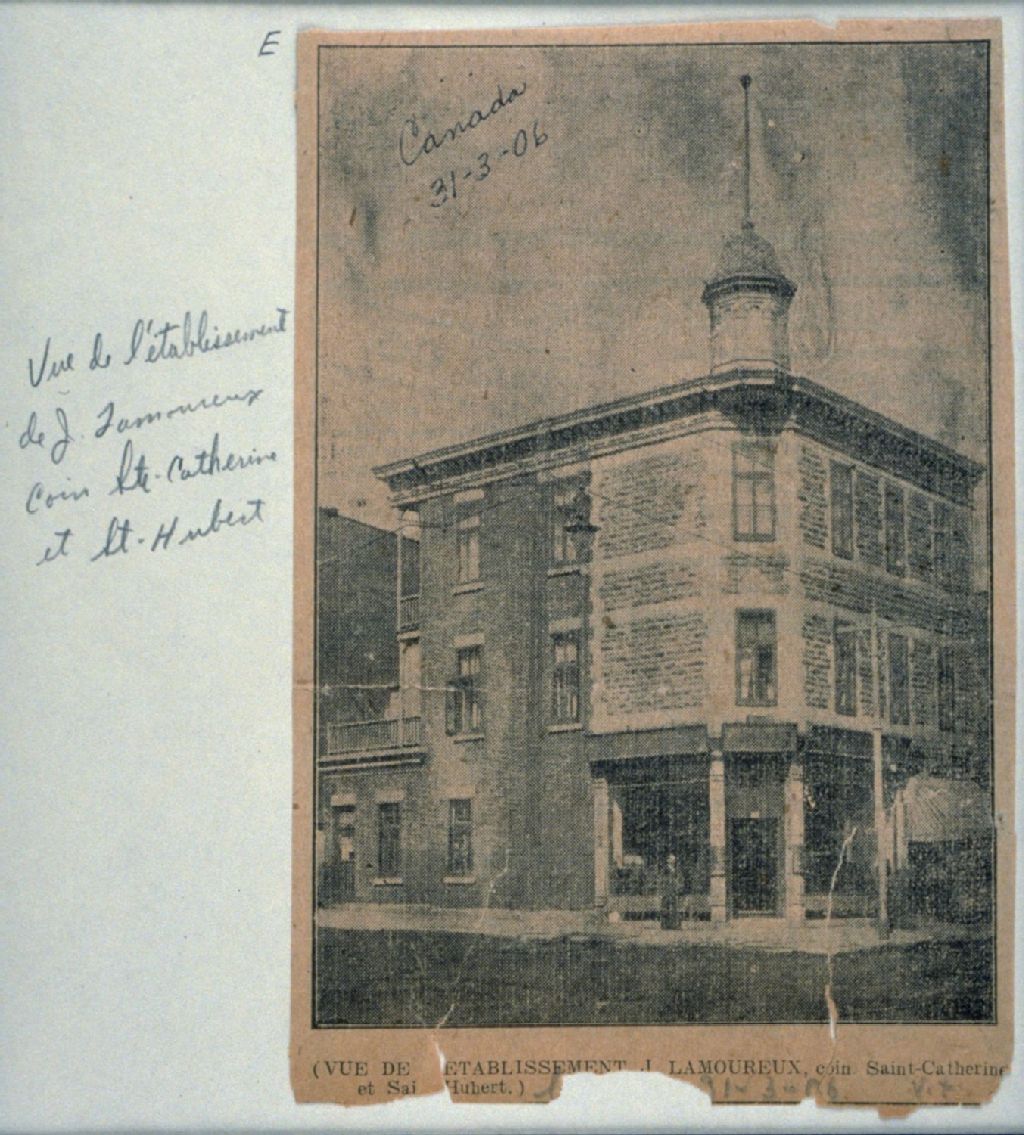 E
Canada
31-3-06
Vue de l'établissement
de J. Lamoureux
coin Ste-Catherine
et St-Hubert
(VUE DE ETABLISSEMENT J. LAMOUREUX, coin Saint-Catherine
et Sai Hubert.) 31-3-06